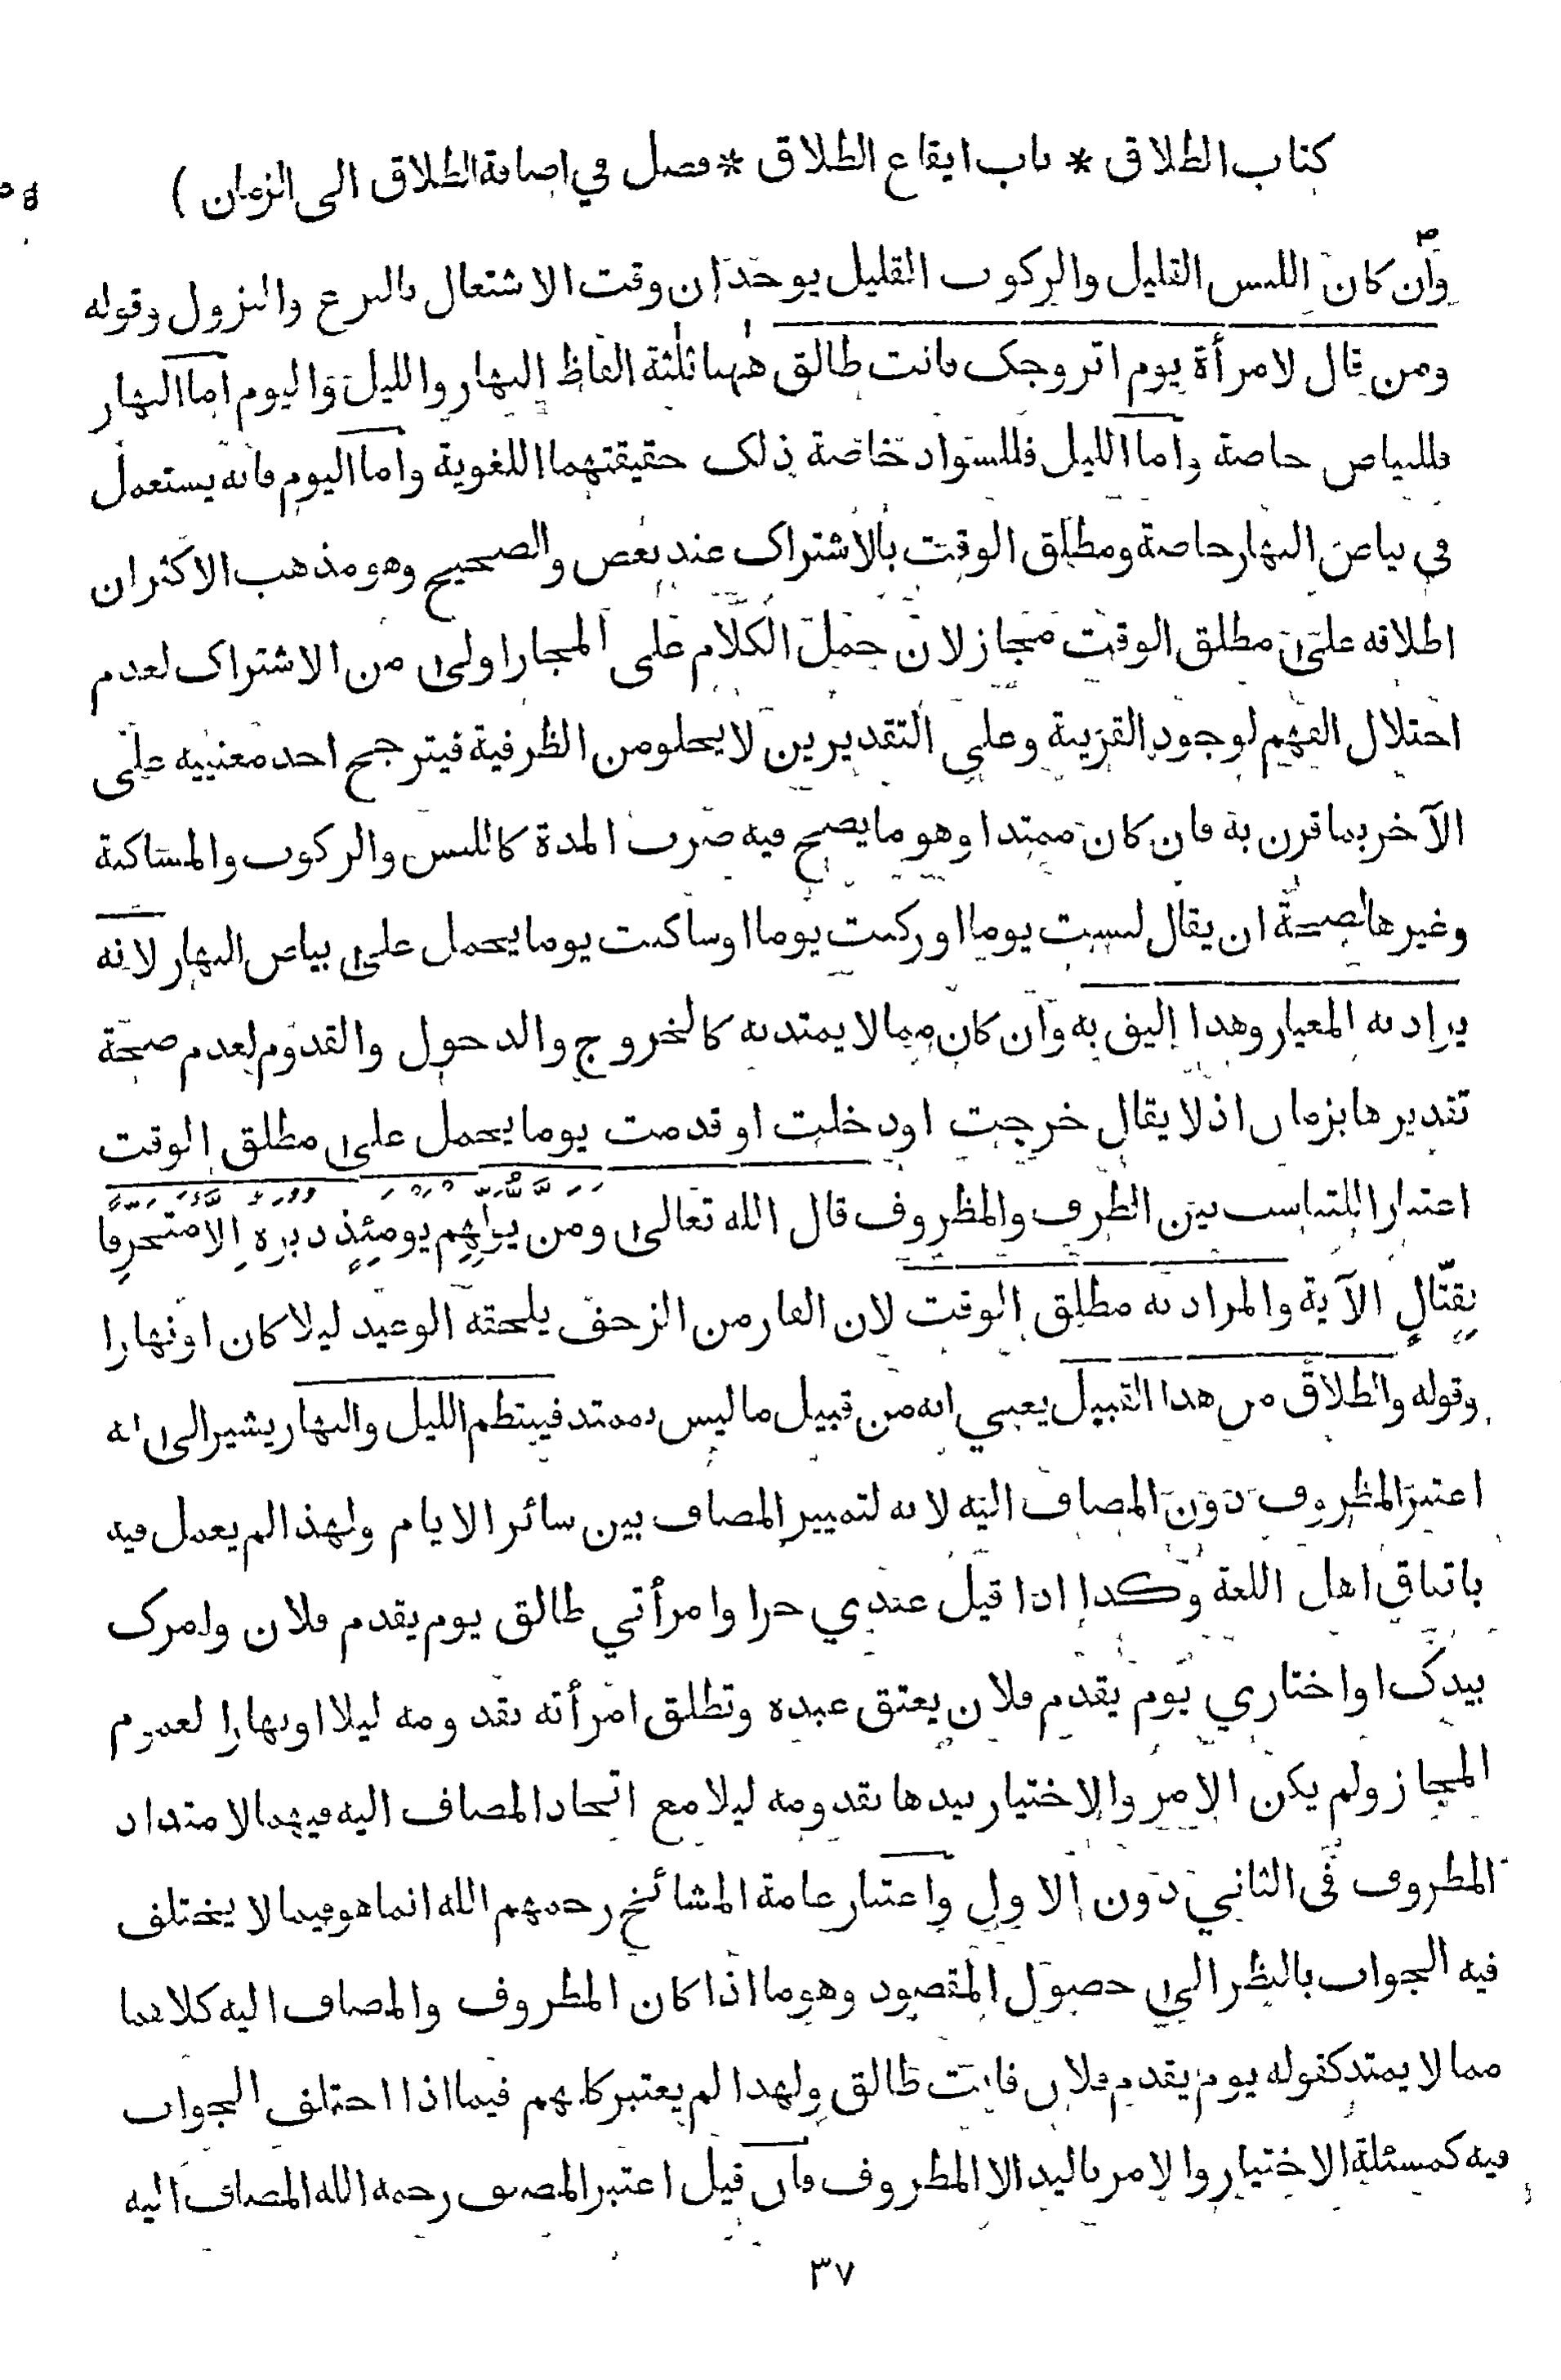 كتاب الطلاق * باب ايقاع الطلاق * فصل في اضافة الطلاق الى الزمان )
وان كان اللبس القليل والركوب القليل يوجدان وقت الاشتغال بالنزع والنزول وقوله
ومن قال لامرأة يوم اتزوجك فانت طالق ههنا ثلثة الفاظ النهار والليل واليوم اما النهار
فللبياض خاصة واما الليل فللسواد خاصة ذلك حقيقتهما اللغوية واما اليوم فانه يستعمل
في بياض النهار خاصة ومطلق الوقت بالاشتراك عند بعض والصحيح وهو مذهب الاكثر ان
اطلاقه على مطلق الوقت مجاز لان حمل الكلام على المجاز اولى من الاشتراك لعدم
اختلال الفهم لوجود القرينة وعلى التقديرين لا يخلو من الظرفية فيترجح احد معنييه على
الآخر بما قرن به فان كان ممتدا وهو ما يصح فيه ضرب المدة كاللبس والركوب والمساكنة
وغيرها لصحة ان يقال لبست يوما او ركبت يوما او ساكنت يوما يحمل على بياض النهار لانه
يراد به المعيار وهذا اليق به وان كان مما لا يمتد به كالخروج والدخول والقدوم لعدم صحة
تقديرها بزمان اذ لا يقال خرجت او دخلت او قدمت يوما يحمل على مطلق الوقت
اعتبارا للتناسب بين الظرف والمظروف قال الله تعالى ومن يولهم يومئذ دبره الا متحرفا
لقتال الآية والمراد به مطلق الوقت لان الفار من الزحف يلحقه الوعيد ليلا كان او نهارا
وقوله والطلاق من هذا القبيل يعني انه من قبيل ما ليس بممتد فينتظم الليل والنهار يشير الى انه
اعتبر المظروف دون المضاف اليه لانه لتمييز المضاف بين سائر الايام ولهذا لم يعمل فيه
باتفاق اهل اللغة وكذا اذا قيل عبدي حر او امرأتي طالق يوم يقدم فلان وامرك
بيدك او اختاري يوم يقدم فلان يعتق عبده وتطلق امرأته بقدومه ليلا او نهارا لعموم
المجاز ولم يكن الامر والاختيار بيدها بقدومه ليلا مع اتحاد المضاف اليه فيهما لامتداد
المظروف في الثاني دون الاول واعتبار عامة المشائخ رحمهم الله انما هو فيما لا يختلف
فيه الجواب بالنظر الى حصول المقصود وهو ما اذا كان المظروف والمضاف اليه كلاهما
مما لا يمتد كقوله يوم يقدم فلان فانت طالق ولهذا لم يعتبر كلهم فيما اذا اختلف الجواب
فيه كمسئلة الاختيار والامر باليد الا المظروف فان قيل اعتبر المصنف رحمه الله المضاف اليه
٣٧